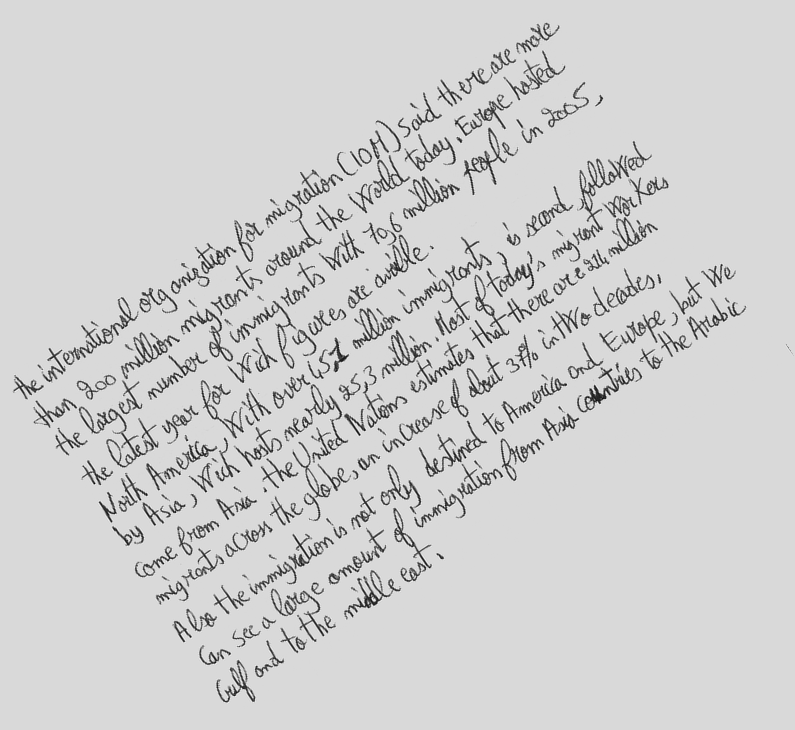 the international organization for migration (IOM) said there are more
than 200 million migrants around the World today. Europe hosted
the largest number of immigrants With 70,6 million people in 2005,
the latest year for Wich figures are avilble.
North America, With over 45,1 million immigrants, is second, followed
by Asia, Wich hosts nearly 25,3 million. Most of today's migrant Workers
come from Asia. the United Nations estimates that there are 214 million
migrants across the globe, an increase of about 37% in tWo decades,
Also the immigration is not only destined to America and Europe, but We
Can see a large amount of immigration from Asia countries to the Arabic
Gulf and to the middle east.